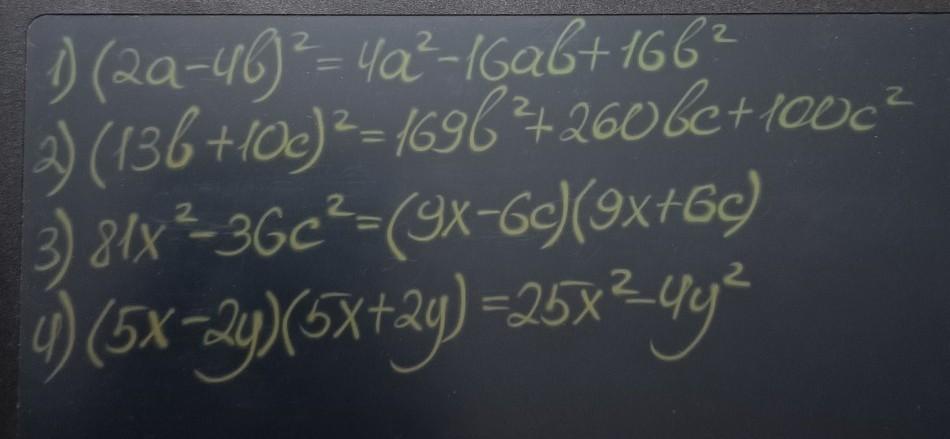 1) (2a-4b)² = 4a²-16ab+16b²
2) (13b+10c)²=169b²+260bc+100c²
3) 81x²-36c²=(9x-6c)(9x+6c)
4) (5x-2y)(5x+2y)=25x²-4y²